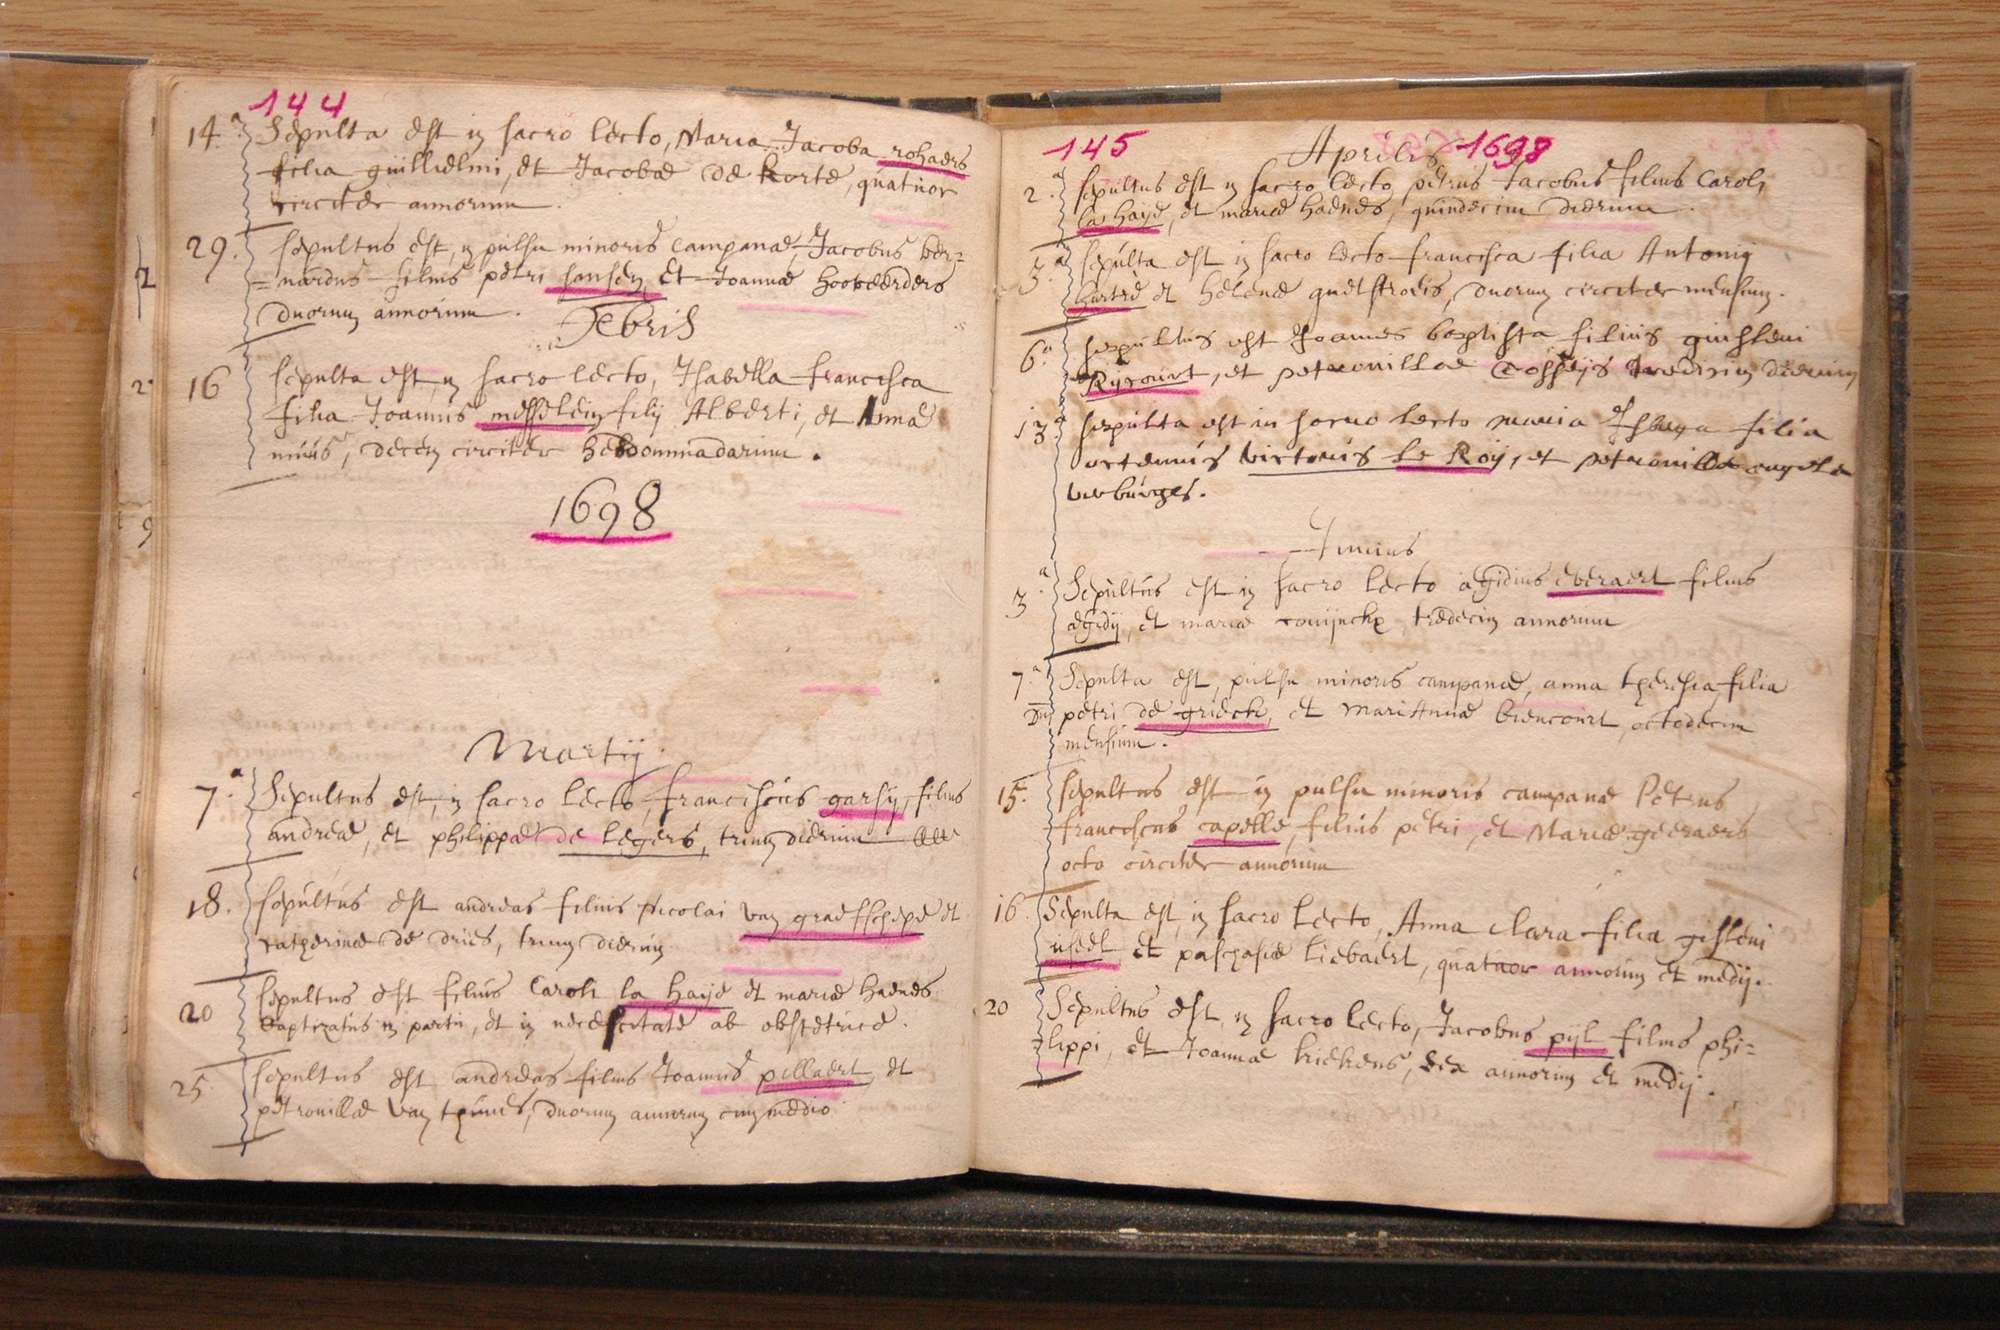 144
14.a Sepulta est in sacro lecto, Maria Jacoba rohaers
filia guillielmi, et Jacobæ de korte, quatuor
circiter annorum.
29. sepultus est in pulsu minoris campanæ, Jacobus ber=
=nardus filius petri sansen et Joannæ
duorum annorum.
Febris
16 sepulta est in sacro lecto, Isabella francisca
filia Joannis messelein filij Alberti, et Annæ
decem circiter hebdommadarum.
1698
Martij
7.a Sepultus est in sacro lecto, franciscus garsij, filius
andreæ, et philippæ de legers, trium dierum
18. sepultus est andreas filius Nicolai van graefschepe et
catherinæ de dries, trium dierum
20 sepultus est filius Caroli la haije et mariæ haenes
baptizatus in partu, et in necescitate ab obstetrice.
25. sepultus est andreas filius Joannis pollaert, et
petronillæ van thunes, duorum annorum cum medio
145
Aprilis 1698
2.a sepultus est in sacro lecto petrus Jacobus filius Caroli
la haije, et mariæ haenes, quindecim dierum.
3.a sepulta est in sacro lecto francisca filia Antonij
hurtrè et helenæ duorum circiter mensium.
6.a sepultus est Joannes baptista filius guisleni
Rijcourt, et petronillæ tredecim dierum
13a sepulta est in sacro lecto maria filia
victoris le Roij, et petronillæ angelæ
verburges.
Junius
3.a Sepultus est in sacro lecto ægidius everaert filius
ægidij, et mariæ couijnckx tredecim annorum
7.a Sepulta est, pulsu minoris campanæ, anna theresia filia
Dni petri de grieck, et Mariannæ biencourt, octodecim
mensium.
15. sepultus est in pulsu minoris campanæ Petrus
franciscus capelle, filius petri, et Mariæ geeraers
octo circiter annorum
16. Sepulta est, in sacro lecto, Anna clara filia gisleni
useel et paschasiæ liebaert, quatuor annorum et medij.
20 Sepultus est, in sacro lecto, Jacobus pijl filius phi=
=lippi, et Joannæ kriekens, sex annorum et medij.